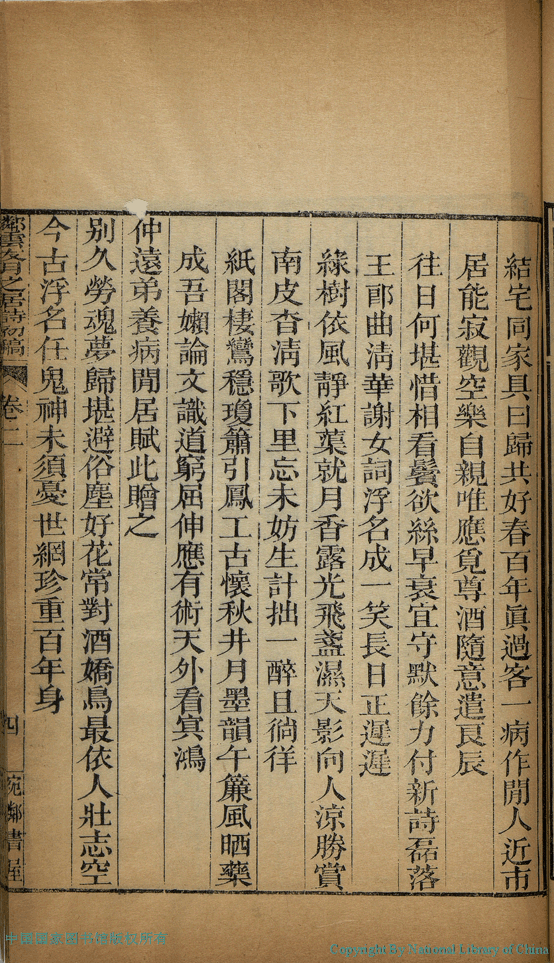 結宅同家具曰歸共好春百年眞過客一病作閒人近市
居能寂觀空樂自親唯應覓尊酒隨意遣良辰
往日何堪惜相看鬢欲絲早衰宜守默餘力付新詩磊落
王郎曲淸華謝女詞浮名成一笑長日正遲遲
綠樹依風靜紅葉就月香露光飛盞濕天影向人涼勝賞
南皮杳淸歌下里忘未妨生計拙一醉且徜徉
紙閣棲鸞穩瓊簫引鳳工古懷秋井月墨韻午簾風晒藥
成吾嬾論文識道窮屈伸應有術天外看冥鴻
仲遠弟養病閒居賦此贈之
別久勞魂夢歸堪避俗塵好花常對酒嬌鳥最依人壯志空
今古浮名任鬼神未須憂世網珍重百年身
鄰雲友月之居詩初稿
卷二
四
宛鄰書屋
中国国家图书馆版权所有
Copyright By National Library of China